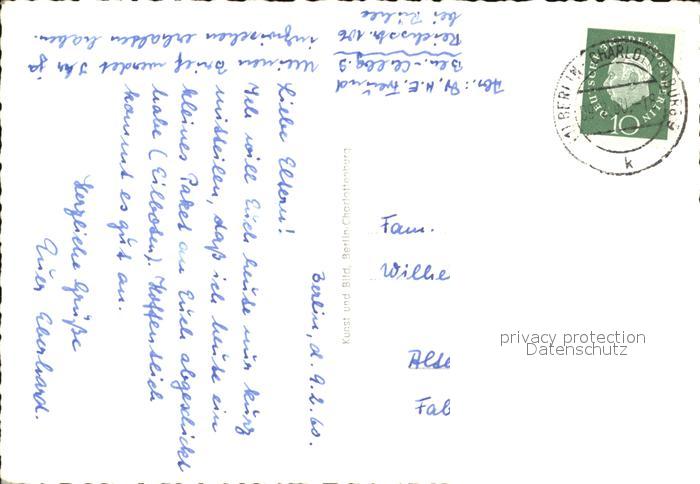 Abs.: W. H. E. Freund
Bln.-Chlbg. 9
Reichsstr. 106
bei Bühne
Berlin, d. 9.2.60.
Liebe Eltern!
Ich will Euch heute nur kurz
mitteilen, daß ich heute ein
kleines Paket an Euch abgeschickt
habe (Eilboten). Hoffentlich
kommt es gut an.
Herzliche Grüße
Euer Eberhard.
Meinen Brief werdet Ihr ja
inzwischen erhalten haben.
Kunst und Bild, Berlin-Charlottenburg
Fam.
Wilhe
Alte
Fab
DEUTSCHE BUNDESPOST BERLIN
10
BERLIN-CHARLOTTENBURG
k
privacy protection
Datenschutz